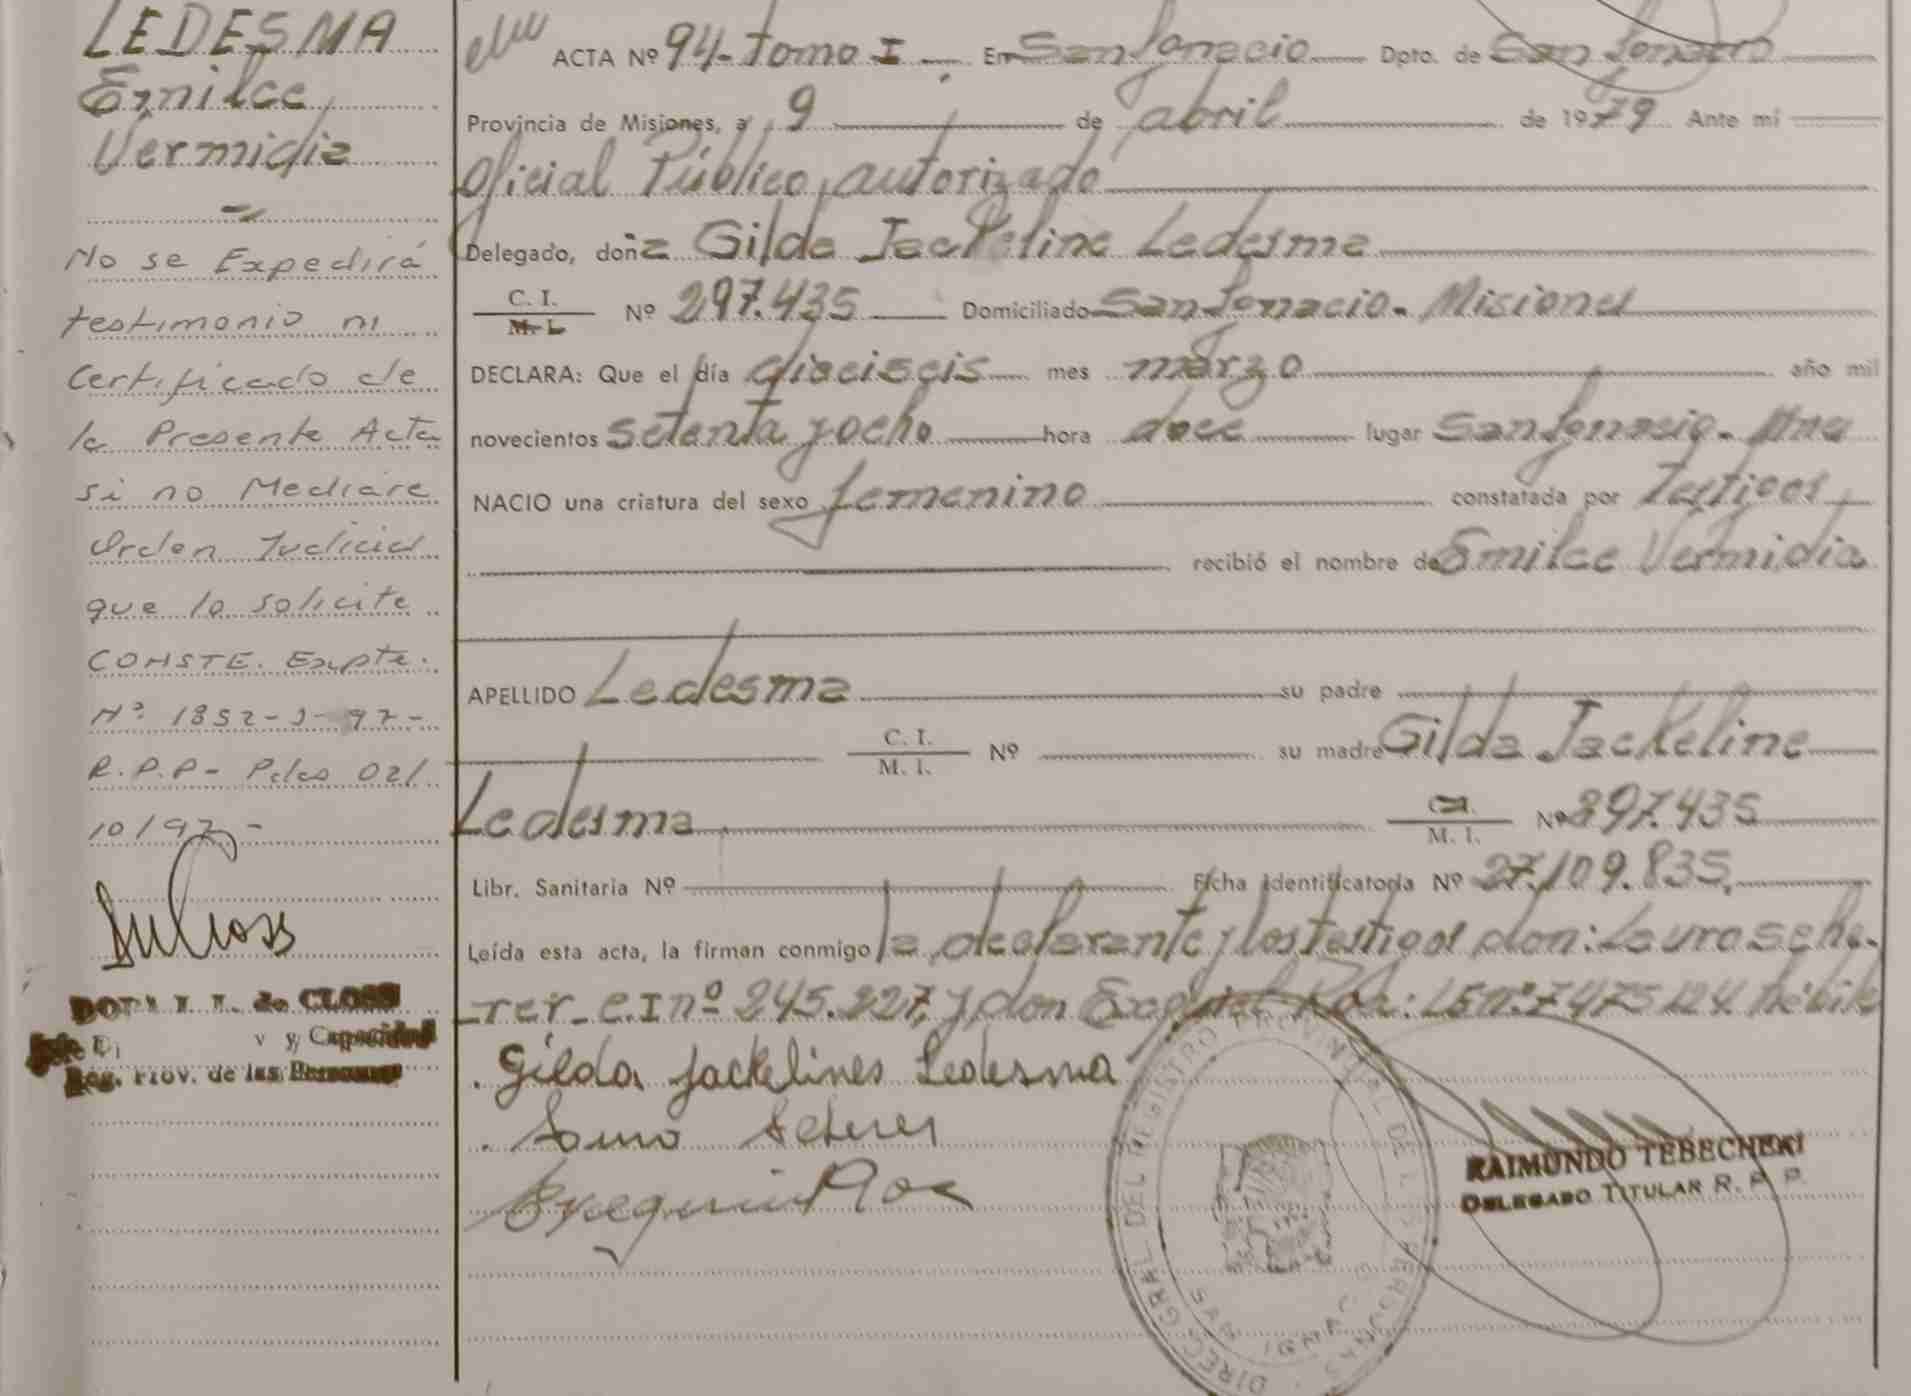 LEDESMA
Emilce
Vermidia
No se Expedirá
testimonio ni
Certificado de
la Presente Acta
si no Mediare
Orden Judicial
que lo solicite
CONSTE. Expte.
Nº 1852-J-97-
R.P.P- Pdas 02/
10/97-
de CLOSS
y Capacidad
Reg. Prov. de las Personas
ACTA Nº 94-Tomo I. En San Ignacio Dpto. de San Ignacio
Provincia de Misiones, a 9 de abril de 1979 Ante mí
Oficial Público, autorizado
Delegado, doña Gilda Jackeline Ledesma
C. I. M. I. Nº 297.435 Domiciliado San Ignacio. Misiones
DECLARA: Que el día dieciseis mes marzo año mil
novecientos setenta y ocho hora doce lugar San Ignacio. Mnes
NACIO una criatura del sexo femenino constatada por Testigos
recibió el nombre de Emilce Vermidia
APELLIDO Ledesma su padre
C. I. M. I. Nº su madre Gilda Jackeline
Ledesma C. I. M. I. Nº 297.435
Libr. Sanitaria Nº Ficha Identificatoria Nº 27.109.835.
Leída esta acta, la firman conmigo la declarante y los testigos don: Lauro Sche-
rer - C.I nº 245.227, y don Exequiel Roa: LE nº 7475124
Gilda Jackelines Ledesma
RAIMUNDO TEBECHERI
DELEGADO TITULAR R. P. P.
DIREC. GRAL. DEL REGISTRO PROVINCIAL DE LAS PERSONAS